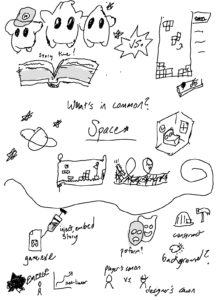 Story time!
VS.
What's in common?
Space
inject, embed
story
gameise
pattern?
construct
background?
non-linear
player's canon
vs
designer's canon